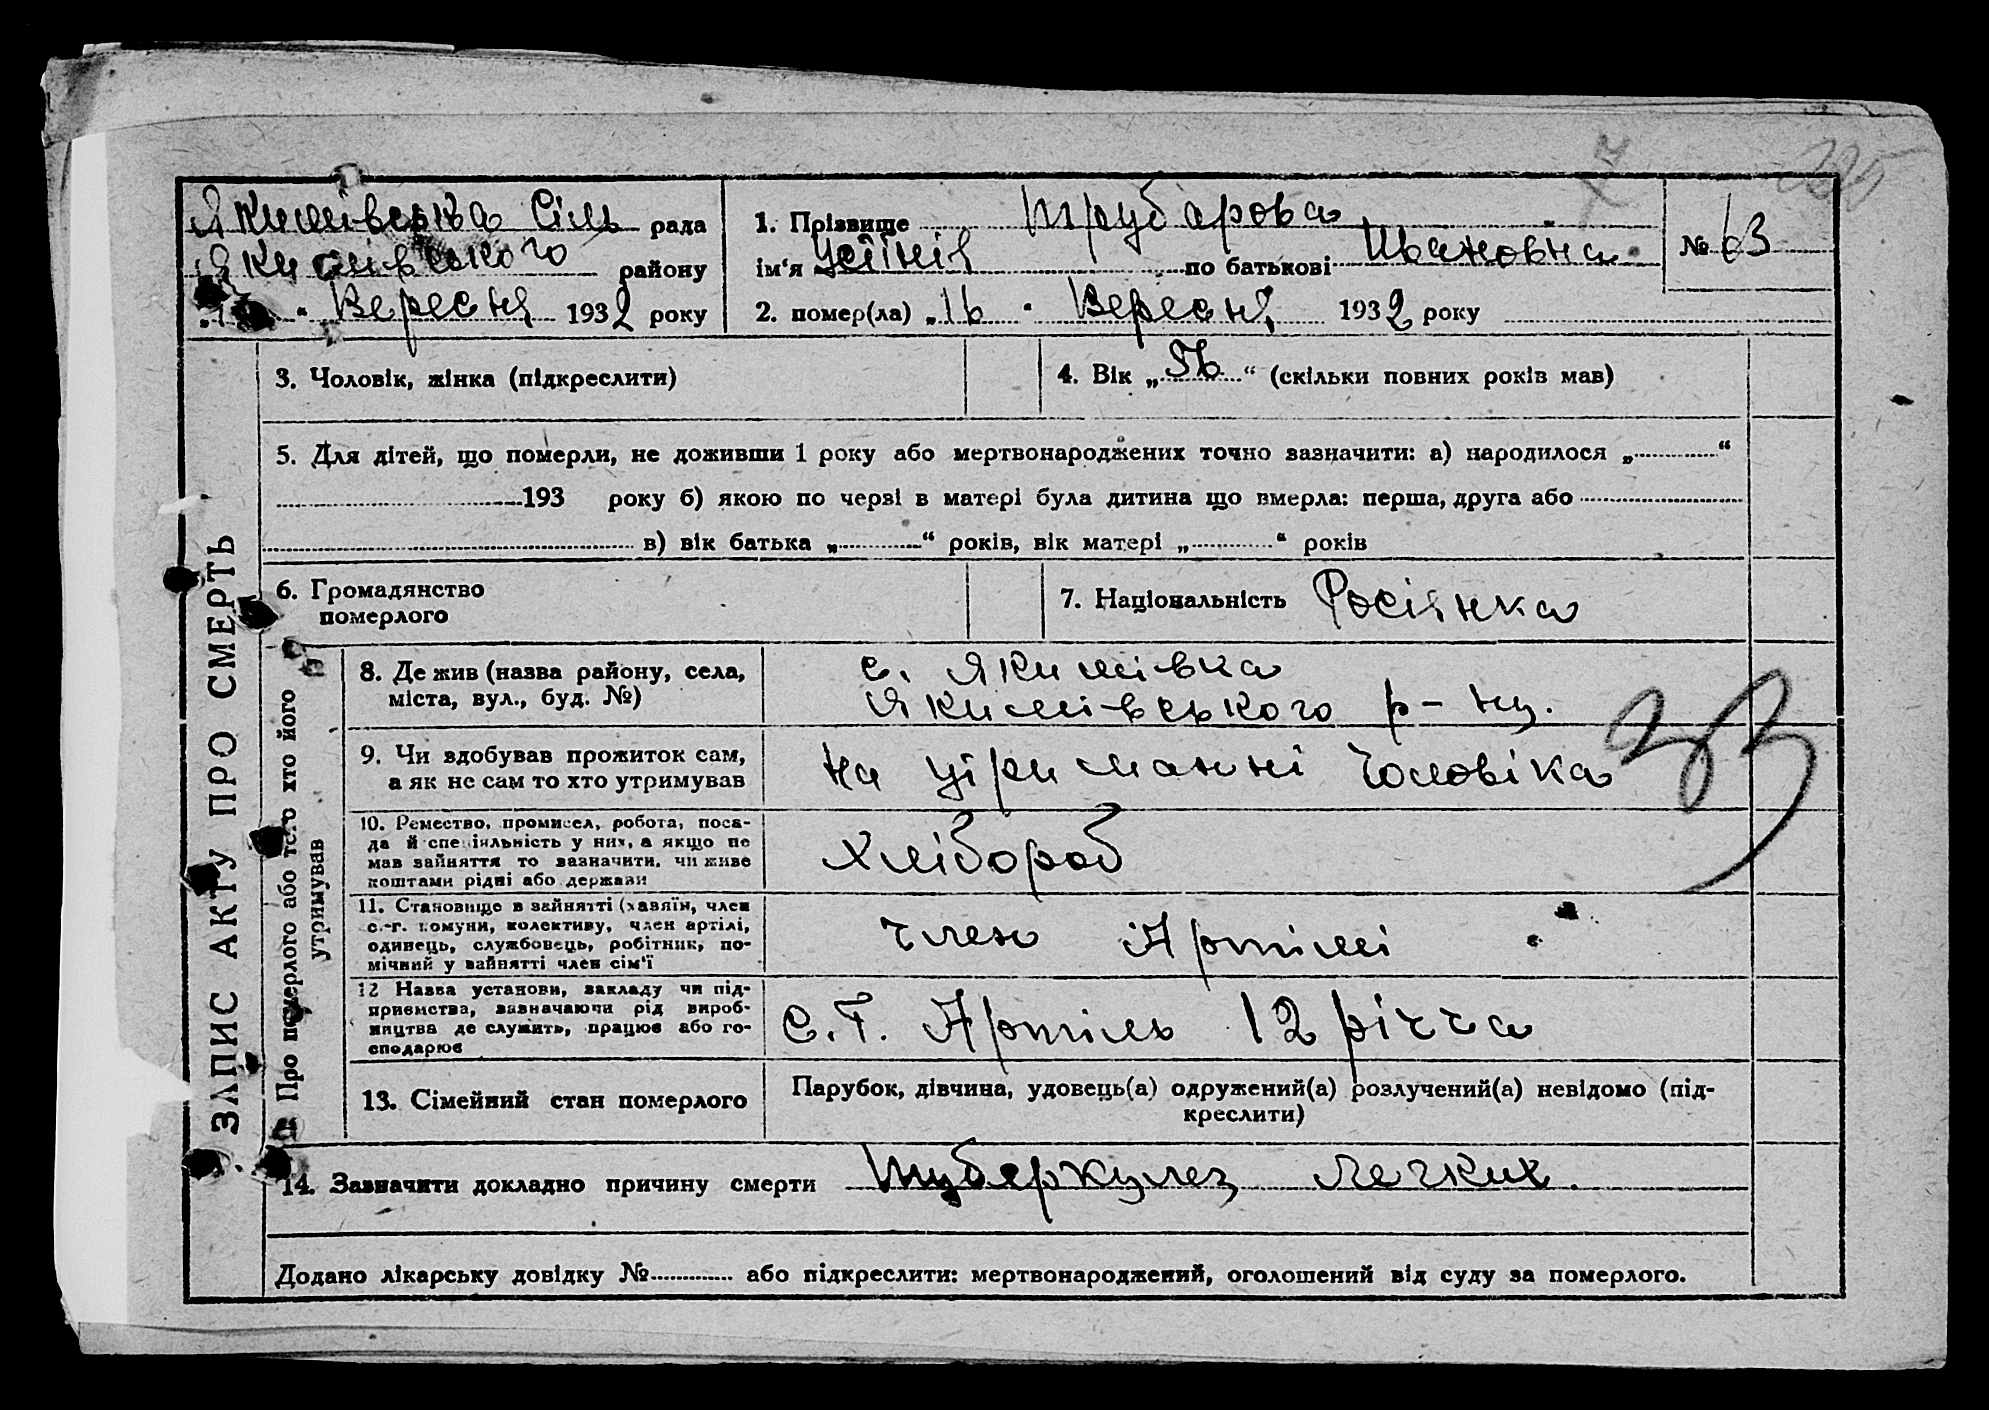 Якимівська Сіль рада
Якимівського району
Вересня 1932 року
1. Прізвище Трубарова
ім'я по батькові Ивановна
№ 63
2. помер(ла) „16 " Вересня 1932 року
ЗАПИС АКТУ ПРО СМЕРТЬ
3. Чоловік, жінка (підкреслити)
4. Вік „56“ (скільки повних років мав)
5. Для дітей, що померли, не доживши 1 року або мертвонароджених точно зазначити: а) народилося „ “
193 року б) якою по черзі в матері була дитина що вмерла: перша, друга або
в) вік батька „ “ років, вік матері „ “ років
6. Громадянство
померлого
7. Національність Росіянка
Про померлого або того хто його
утримував
8. Де жив (назва району, села,
міста, вул., буд. №)
с. Якимівка
Якимівського р-ну.
9. Чи здобував прожиток сам,
а як не сам то хто утримував
на утриманні чоловіка
33
10. Ремество, промисел, робота, поса-
да й спеціяльність у них, а якщо не
мав зайняття то зазначити, чи живе
коштами рідні або держави
Хлібороб
11. Становище в зайнятті (хазяїн, член
с.-г. комуни, колективу, член артілі,
одинець, службовець, робітник, по-
мічний у зайнятті член сім'ї
член Артілі
12 Назва установи, закладу чи під-
приємства, зазначаючи рід вироб-
ництва де служить, працює або го-
сподарює
С.Г. Артіль 12 річча
13. Сімейний стан померлого
Парубок, дівчина, удовець(а) одружений(а) розлучений(а) невідомо (під-
креслити)
14. Зазначити докладно причину смерти Туберкулез легких.
Додано лікарську довідку № або підкреслити: мертвонароджений, оголошений від суду за померлого.